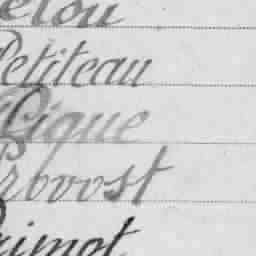 elou
Petiteau
Pique
Prevost
rimot